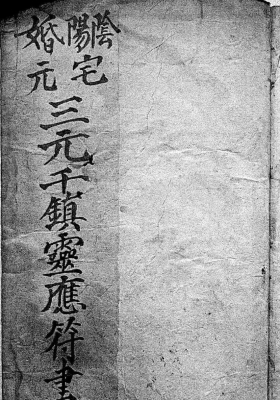 陰陽宅
婚元
三元千鎮靈應符書